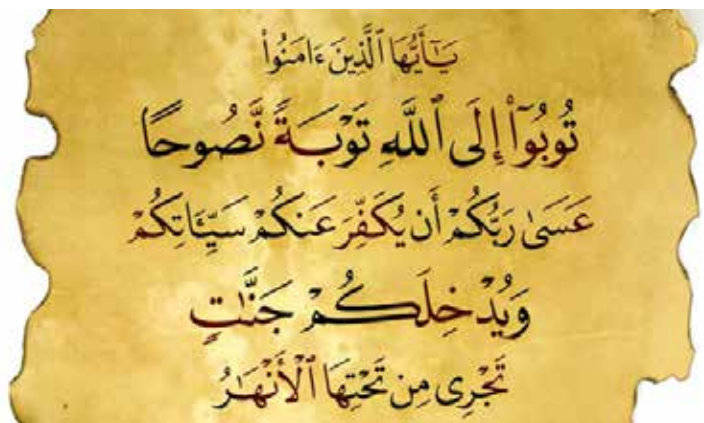 يَـٰٓأَيُّهَا ٱلَّذِينَ ءَامَنُوا۟
تُوبُوٓا۟ إِلَى ٱللَّهِ تَوْبَةً نَّصُوحًا
عَسَىٰ رَبُّكُمْ أَن يُكَفِّرَ عَنكُمْ سَيِّـَٔاتِكُمْ
وَيُدْخِلَكُمْ جَنَّـٰتٍ
تَجْرِى مِن تَحْتِهَا ٱلْأَنْهَـٰرُ